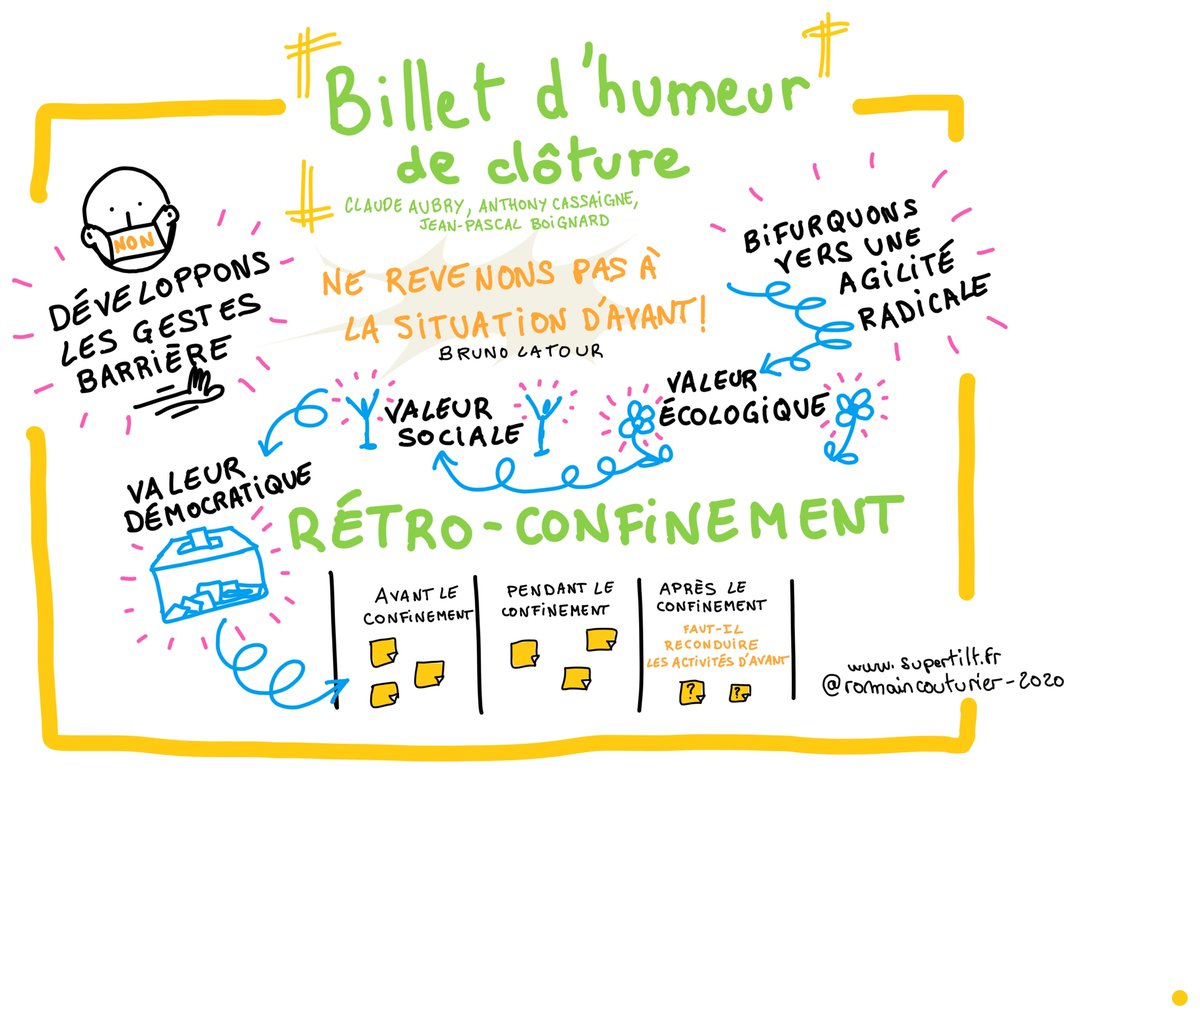 Billet d'humeur
de clôture
CLAUDE AUBRY, ANTHONY CASSAIGNE,
JEAN-PASCAL BOIGNARD
NON
DÉVELOPPONS
LES GESTES
BARRIÈRE
NE REVENONS PAS À
LA SITUATION D'AVANT!
BRUNO LATOUR
BIFURQUONS
VERS UNE
AGILITÉ
RADICALE
VALEUR
ÉCOLOGIQUE
VALEUR
SOCIALE
VALEUR
DÉMOCRATIQUE
RÉTRO-CONFINEMENT
AVANT LE
CONFINEMENT
PENDANT LE
CONFINEMENT
APRÈS LE
CONFINEMENT
FAUT-IL
RECONDUIRE
LES ACTIVITÉS D'AVANT
? ?
www.supertilt.fr
@romaincouturier-2020